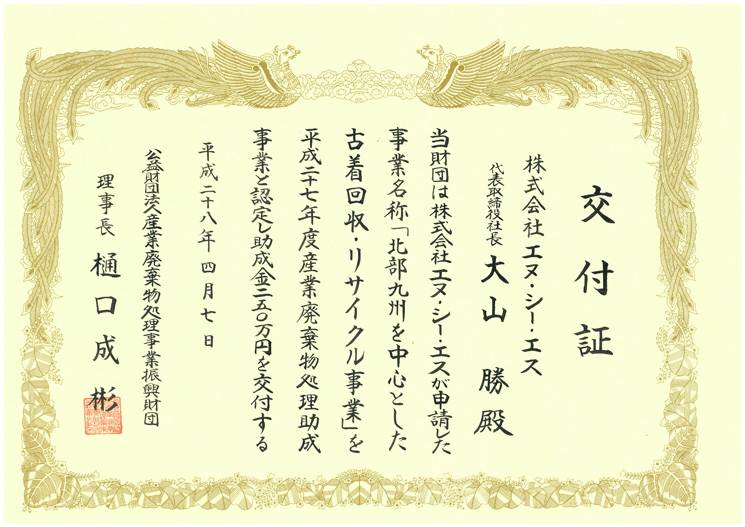 交付証
株式会社 エヌ・シー・エス
代表取締役社長 大山 勝 殿
当財団は株式会社エヌ・シー・エスが申請した
事業名称「北部九州を中心とした
古着回収・リサイクル事業」を
平成二十七年度産業廃棄物処理助成
事業と認定し助成金二五〇万円を交付する
平成二十八年四月七日
公益財団法人産業廃棄物処理事業振興財団
理事長 樋口成彬